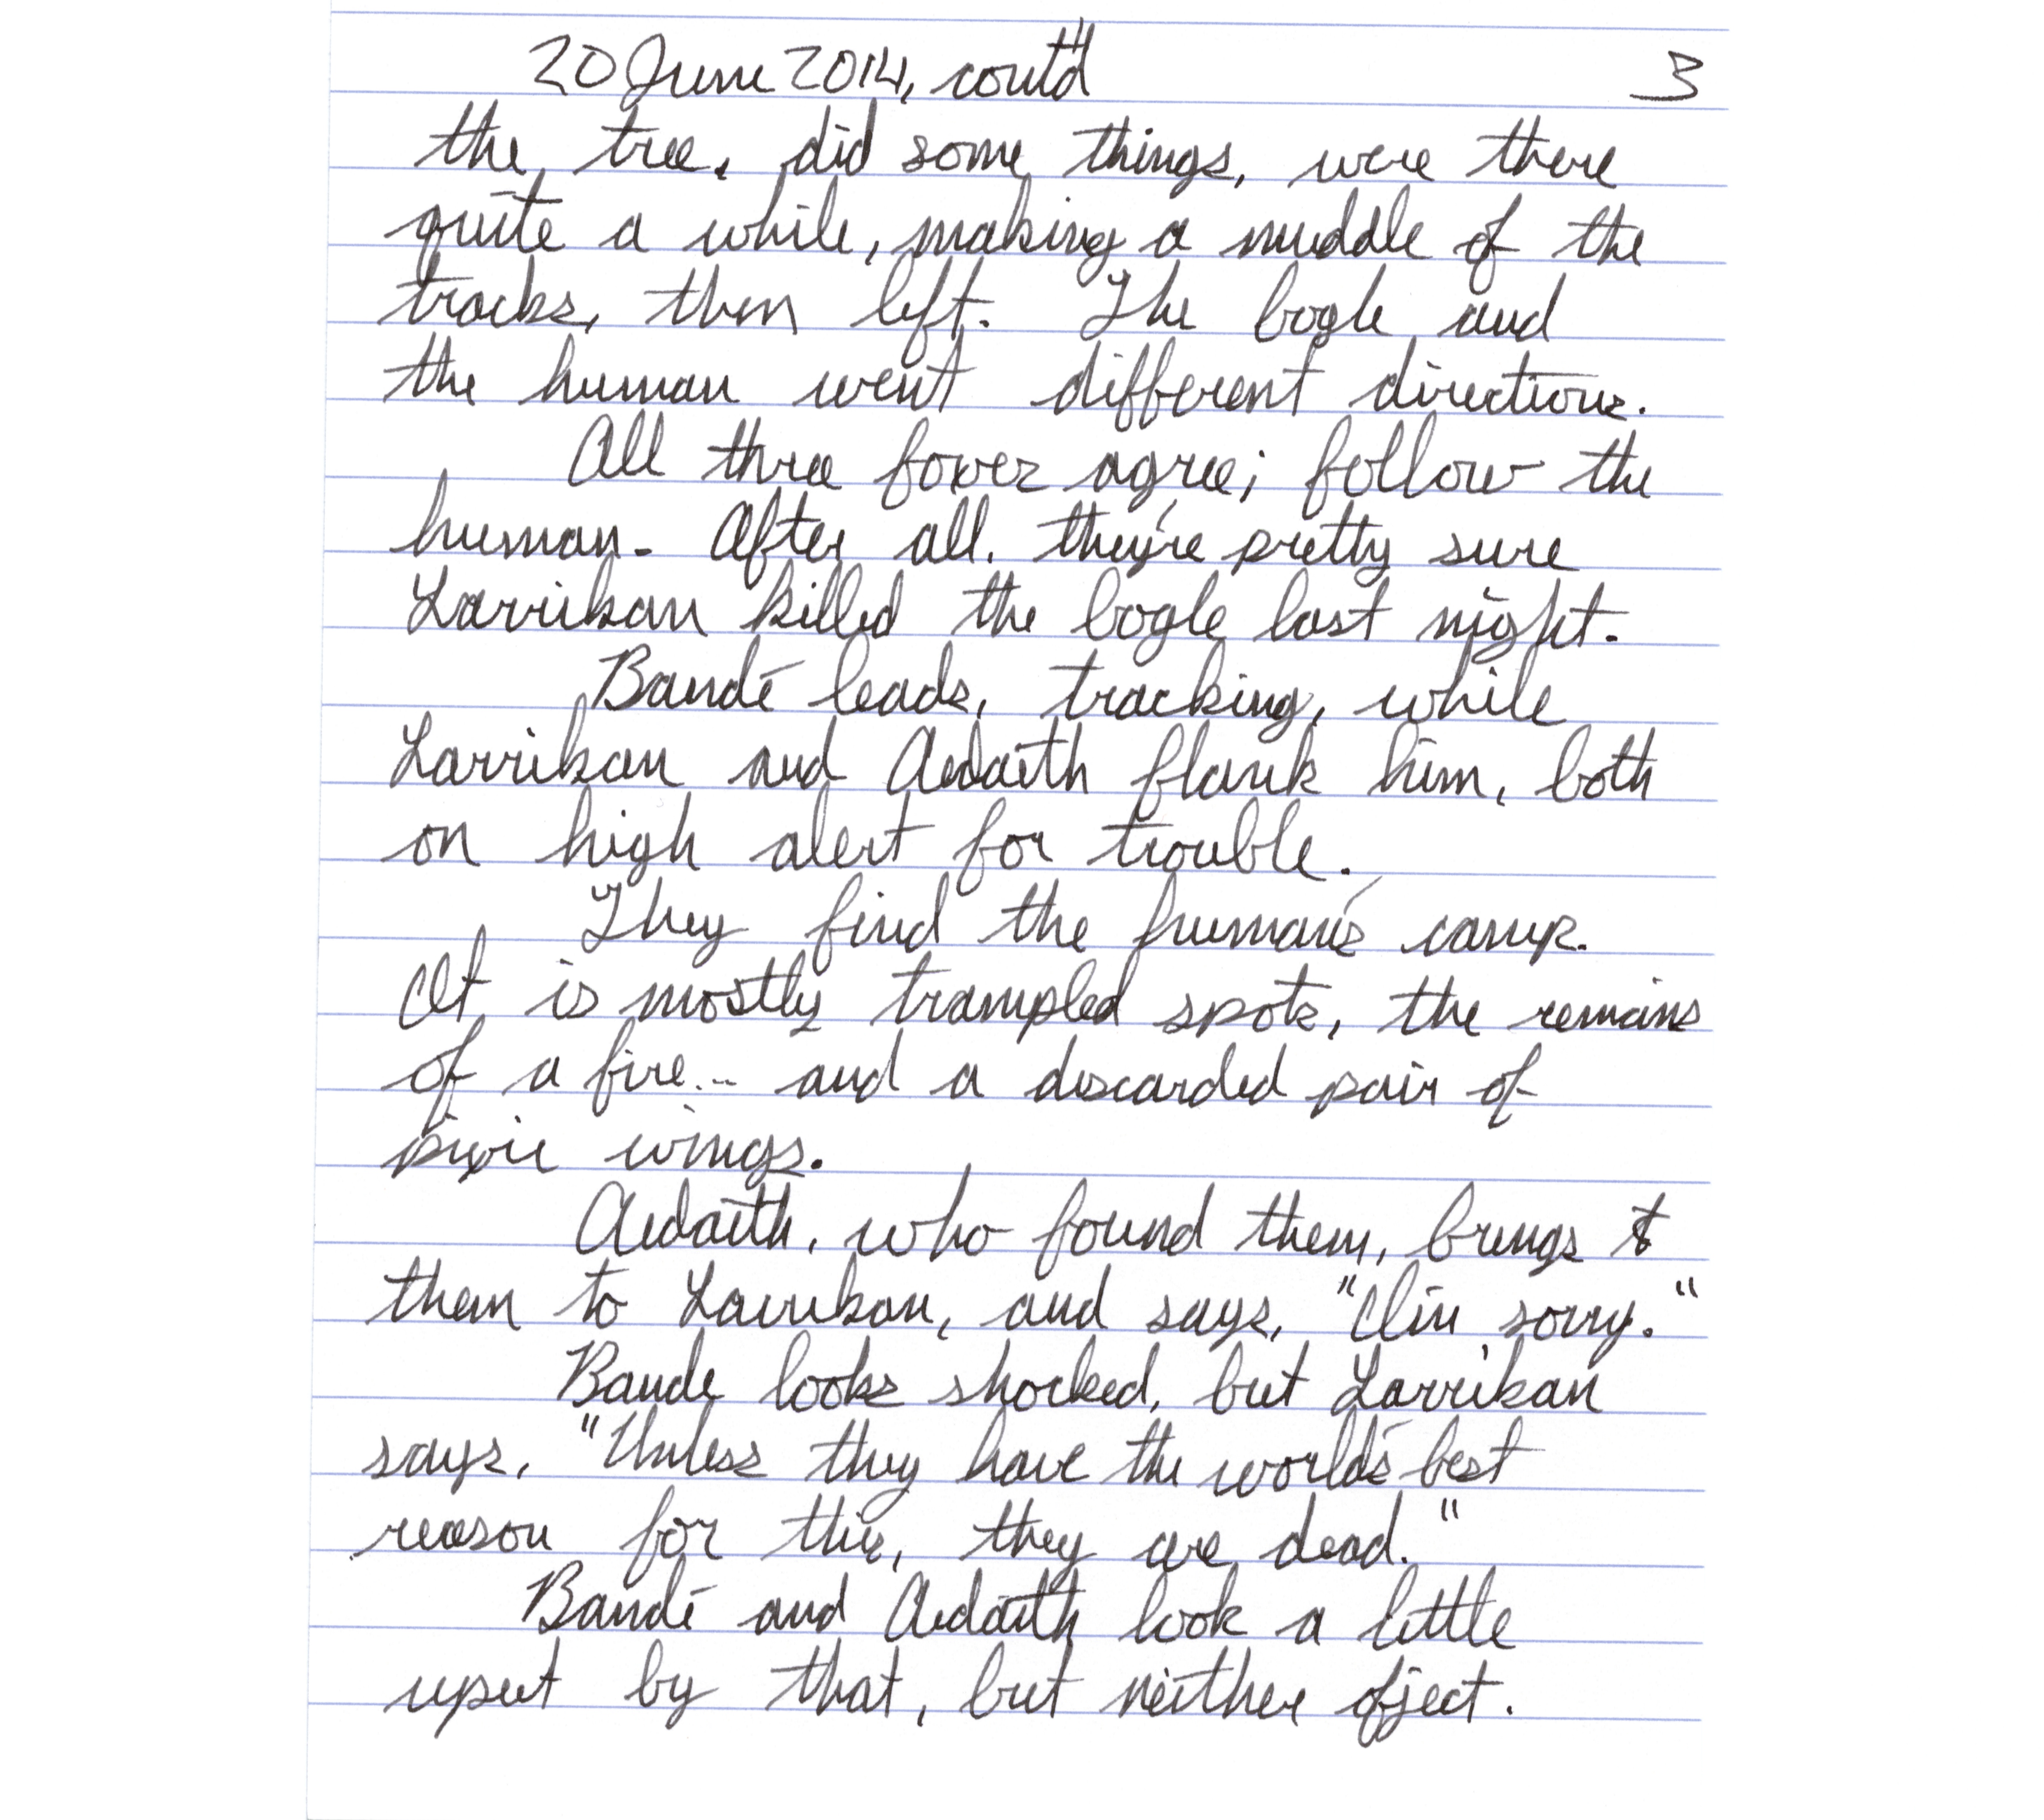 20 June 2014, cont'd 3
the tree, did some things, were there
quite a while, making a muddle of the
tracks, then left. The bogle and
the human went different directions.
All three foxes agree; follow the
human. After all, they're pretty sure
Larrikan killed the bogle last night.
Bandé leads, tracking, while
Larrikan and Aedaith flank him, both
on high alert for trouble.
They find the human's camp.
It is mostly trampled spots, the remains
of a fire... and a discarded pair of
pixie wings.
Aedaith, who found them, brings
them to Larrikan, and says, "I'm sorry."
Bandé looks shocked, but Larrikan
says, "Unless they have the world's best
reason for this, they are dead."
Bandé and Aedaith look a little
upset by that, but neither object.